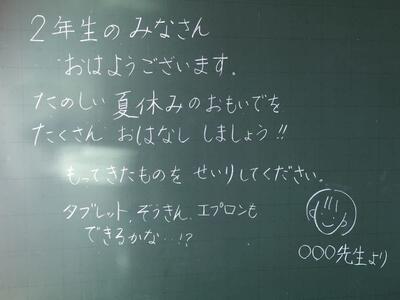 2年生のみなさん
おはようございます。
たのしい夏休みのおもいでを
たくさん おはなし しましょう!!
もってきたものを せいりしてください。
タブレット、ぞうきん、エプロンも
できるかな…!?
○○○先生より